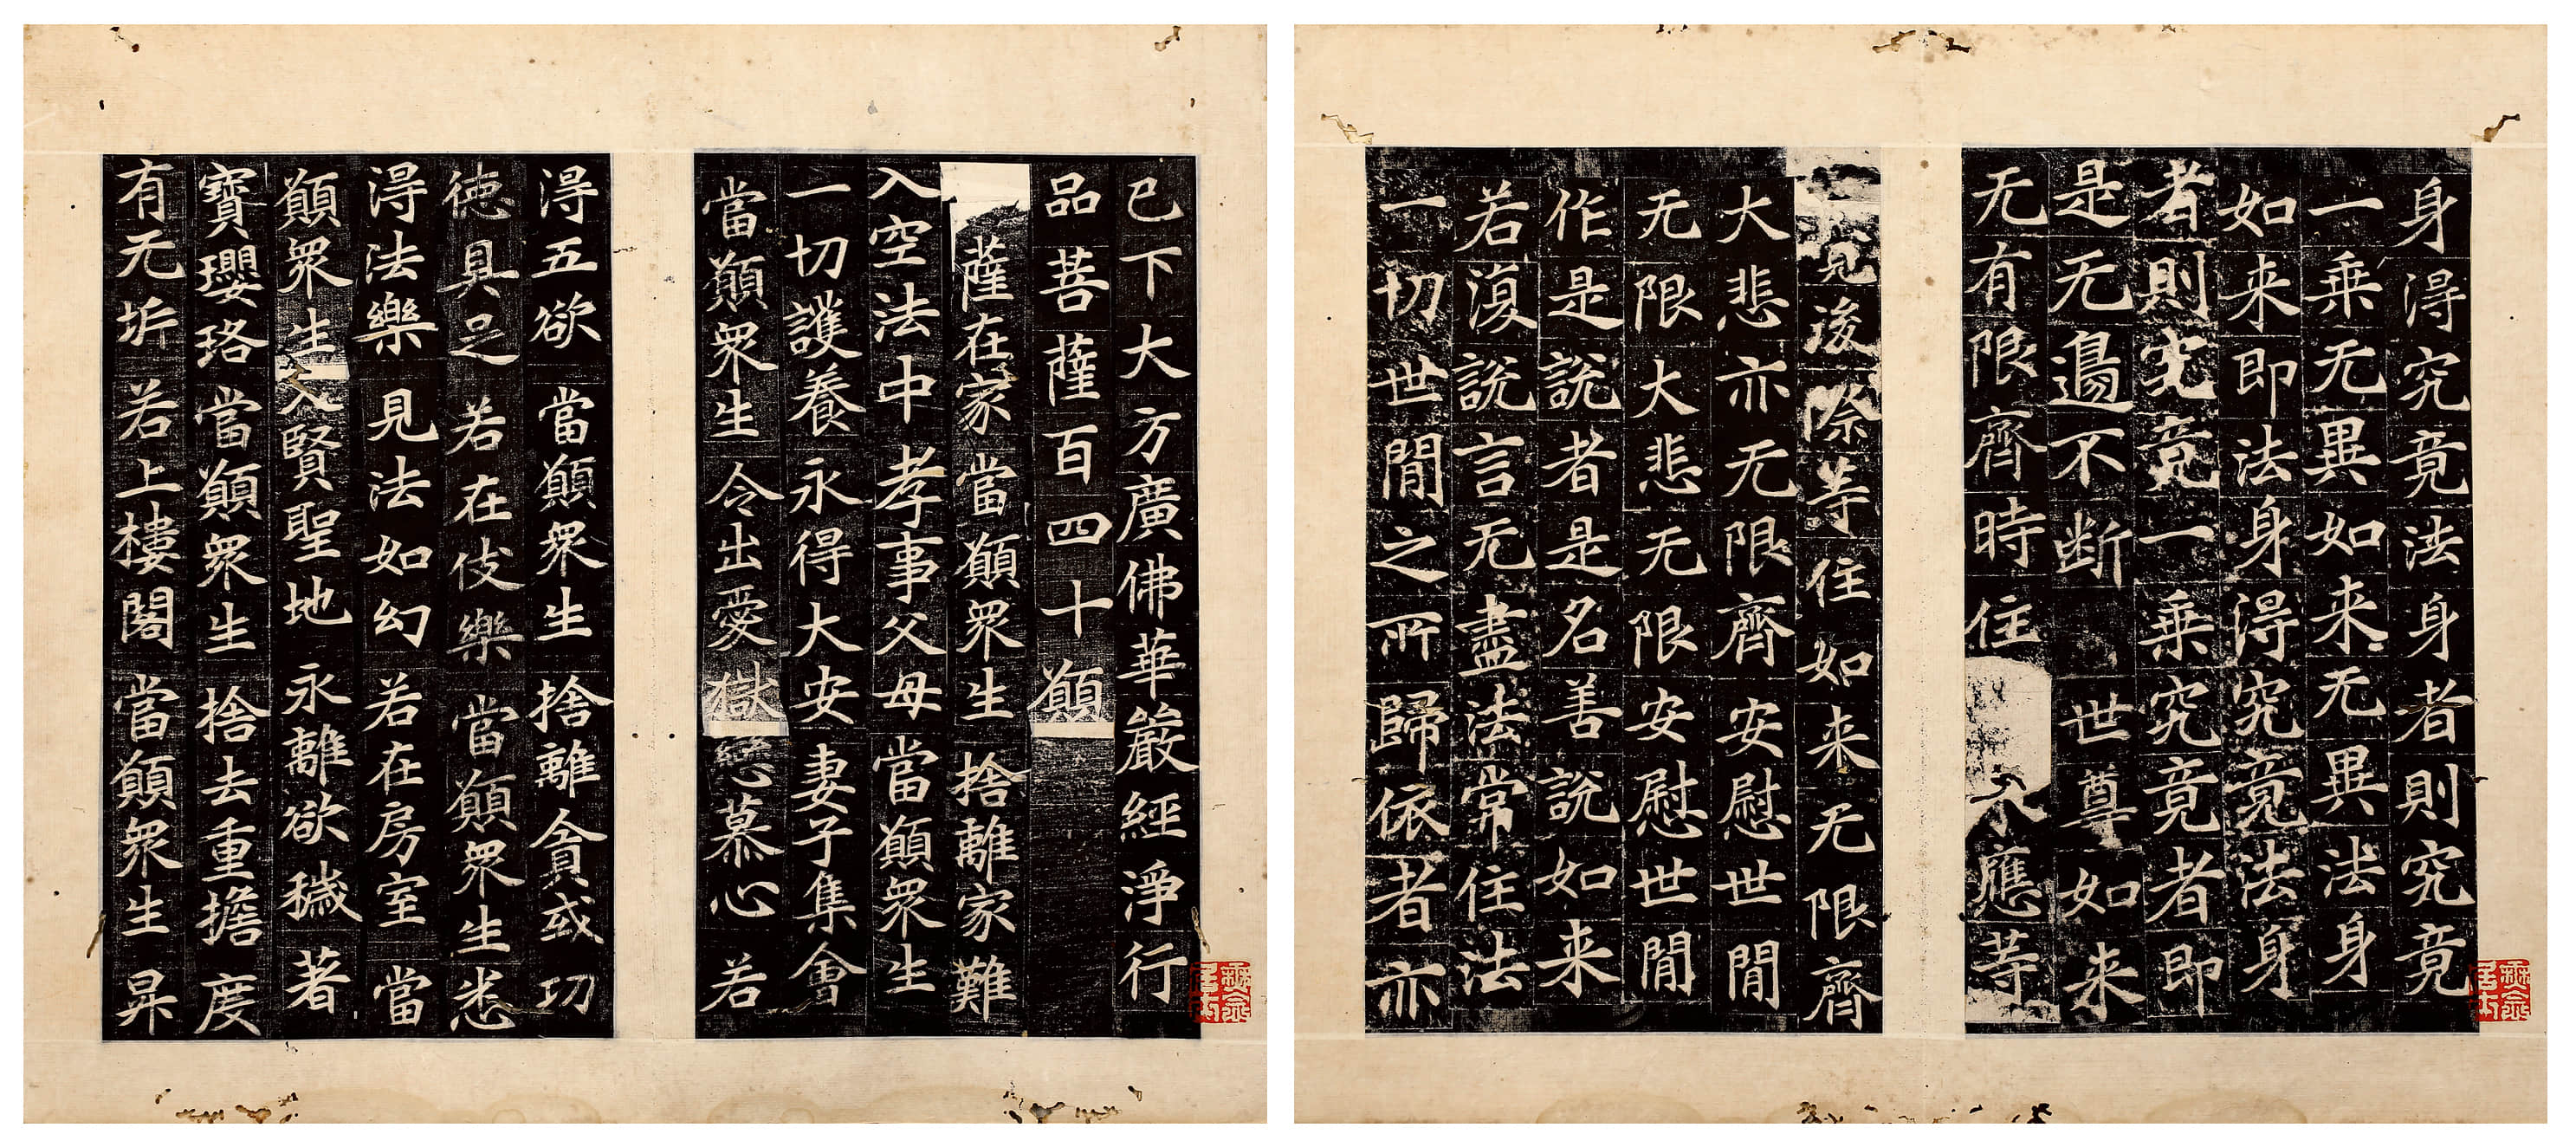 身得究竟法身者則究竟
一乘无異如来无異法身
如来即法身得究竟法身
者則究竟一乘究竟者即
是无邊不断世尊如来
无有限齊時住應等
覺後際等住如来无限齊
大悲亦无限齊安慰世閒
无限大悲无限安慰世閒
作是說者是名善說如来
若復說言无盡法常住法
一切世閒之所歸依者亦
已下大方廣佛華嚴經淨行
品菩薩百四十願
薩在家當願衆生捨離家難
入空法中孝事父母當願衆生
一切護養永得大安妻子集會
當願衆生令出愛獄戀慕心若
得五欲當願衆生捨離貪或功
德具足若在伎樂當願衆生悉
得法樂見法如幻若在房室當
願衆生入賢聖地永離欲穢著
寶瓔珞當願衆生捨去重擔度
有无坼若上樓閣當願衆生昇